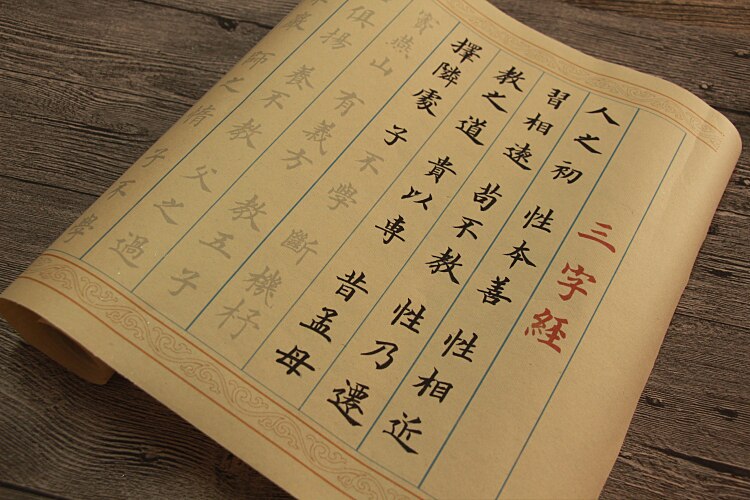 三字經
人之初 性本善 性相近
習相遠 苟不教 性乃遷
教之道 貴以專 昔孟母
擇隣處 子不學 斷機杼
竇燕山 有義方 教五子
俱揚 養不教 父之過
嚴 師之惰 子不學